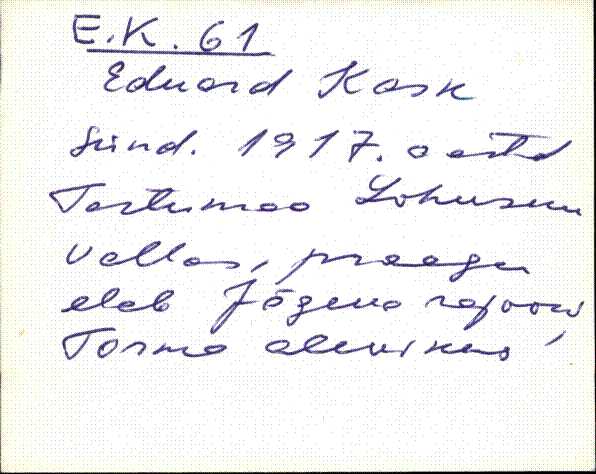 E.K. 61
Eduard Kask
sünd. 1917. aastal
Tartumaa Lohusuu
vallas, praegu
elab Jõgeva rajooni
Torma alevikus